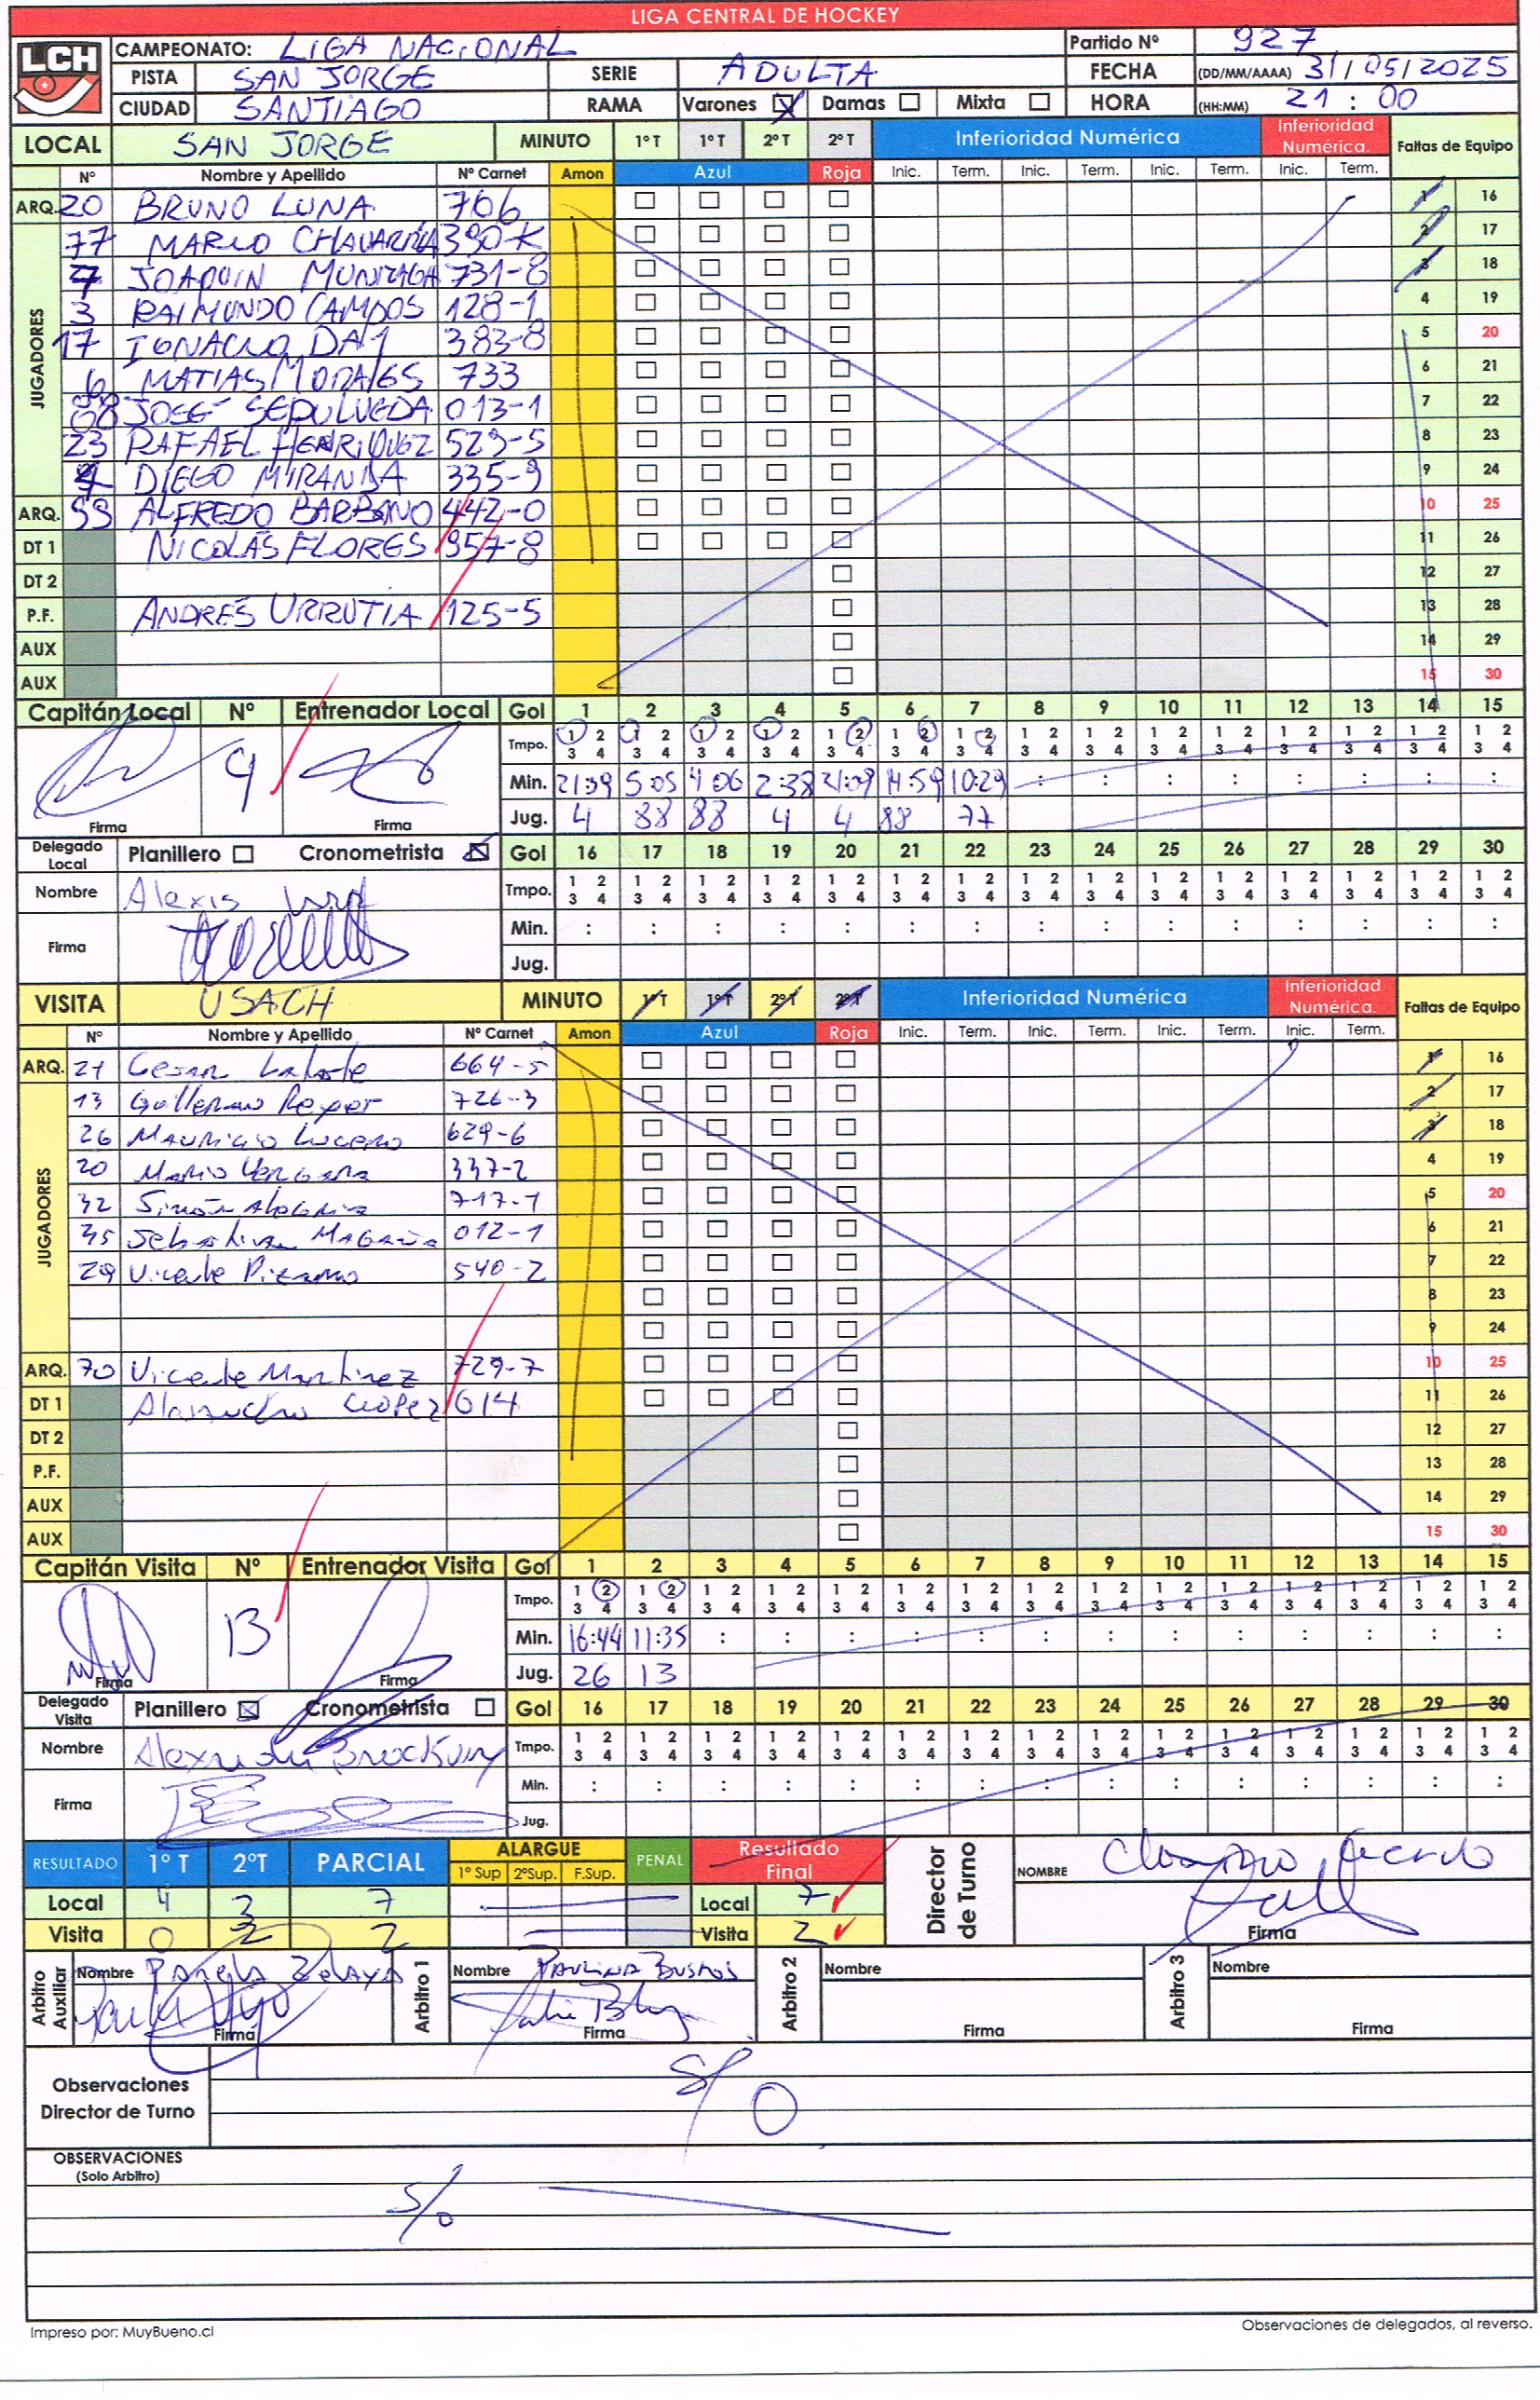 LIGA CENTRAL DE HOCKEY
LCH CAMPEONATO: LIGA NACIONAL Partido Nº 927
PISTA SAN JORGE SERIE ADULTA FECHA (DD/MM/AAAA) 31/05/2025
CIUDAD SANTIAGO RAMA Varones Damas Mixta HORA (HH:MM) 21:00
LOCAL SAN JORGE MINUTO 1º T 1º T 2º T 2º T Inferioridad Numérica Inferioridad Numérica. Faltas de Equipo
Nº Nombre y Apellido Nº Carnet Amon Azul Roja Inic. Term. Inic. Term. Inic. Term. Inic. Term.
ARQ. 20 BRUNO LUNA 706 1 16
JUGADORES
77 MARCO CHAVARRÍA 390-K 2 17
7 JOAQUIN MUNIZAGA 731-8 3 18
3 RAIMUNDO CAMPOS 128-1 4 19
17 IGNACIO 383-8 5 20
6 MATIAS MORALES 733 6 21
88 JOSÉ SEPULVEDA 013-1 7 22
23 RAFAEL HENRIQUEZ 529-5 8 23
4 DIEGO MIRANDA 335-9 9 24
ARQ. ALFREDO 442-0 10 25
DT 1 NICOLÁS FLORES 957-8 11 26
DT 2 12 27
P.F. ANDRÉS URRUTIA 125-5 13 28
AUX 14 29
AUX 15 30
Capitán Local Nº Entrenador Local Gol 1 2 3 4 5 6 7 8 9 10 11 12 13 14 15
Tmpo. 1 2 3 4 1 2 3 4 1 2 3 4 1 2 3 4 1 2 3 4 1 2 3 4 1 2 3 4 1 2 3 4 1 2 3 4 1 2 3 4 1 2 3 4 1 2 3 4 1 2 3 4 1 2 3 4 1 2 3 4
Min. 5:05 4:06 2:38 21:09 14:59 10:29 : : : : : : : :
Firma Firma Jug. 4 88 88 4 4 88 77
Delegado Local Planillero Cronometrista Gol 16 17 18 19 20 21 22 23 24 25 26 27 28 29 30
Nombre Alexis Tmpo. 1 2 3 4 1 2 3 4 1 2 3 4 1 2 3 4 1 2 3 4 1 2 3 4 1 2 3 4 1 2 3 4 1 2 3 4 1 2 3 4 1 2 3 4 1 2 3 4 1 2 3 4 1 2 3 4 1 2 3 4
Firma Min. : : : : : : : : : : : : : : :
Jug.
VISITA USACH MINUTO 1º T 1º T 2º T 2º T Inferioridad Numérica Inferioridad Numérica. Faltas de Equipo
Nº Nombre y Apellido Nº Carnet Amon Azul Roja Inic. Term. Inic. Term. Inic. Term. Inic. Term.
ARQ. 21 Cesar 664-5 1 16
JUGADORES
13 Guillermo Reyes 726-3 2 17
26 Mauricio Lucero 629-6 3 18
20 Mario Vergara 337-2 4 19
32 Simón 717-1 5 20
35 Sebastian Magaña 012-1 6 21
29 Vicente Pizarro 540-2 7 22
8 23
9 24
ARQ. 70 Vicente Martinez 729-7 10 25
DT 1 Alejandro Lopez 614 11 26
DT 2 12 27
P.F. 13 28
AUX 14 29
AUX 15 30
Capitán Visita Nº Entrenador Visita Gol 1 2 3 4 5 6 7 8 9 10 11 12 13 14 15
Tmpo. 1 2 3 4 1 2 3 4 1 2 3 4 1 2 3 4 1 2 3 4 1 2 3 4 1 2 3 4 1 2 3 4 1 2 3 4 1 2 3 4 1 2 3 4 1 2 3 4 1 2 3 4 1 2 3 4 1 2 3 4
13 Min. 16:44 11:35 : : : : : : : : : : : : :
Firma Firma Jug. 26 13
Delegado Visita Planillero Cronometrista Gol 16 17 18 19 20 21 22 23 24 25 26 27 28 29 30
Nombre Tmpo. 1 2 3 4 1 2 3 4 1 2 3 4 1 2 3 4 1 2 3 4 1 2 3 4 1 2 3 4 1 2 3 4 1 2 3 4 1 2 3 4 1 2 3 4 1 2 3 4 1 2 3 4 1 2 3 4 1 2 3 4
Firma Min. : : : : : : : : : : : : : : :
Jug.
RESULTADO 1º T 2ºT PARCIAL ALARGUE 1º Sup 2ºSup. F.Sup. PENAL Resultado Final Director de Turno NOMBRE
Local 4 3 7 Local 7
Visita 0 2 2 Visita 2 Firma
Arbitro Auxiliar Nombre Pamela Zelaya Arbitro 1 Nombre PAULINA BUSTOS Arbitro 2 Nombre Arbitro 3 Nombre
Firma Firma Firma Firma
Observaciones Director de Turno S/O
OBSERVACIONES
(Solo Arbitro)
S/o
Impreso por: MuyBueno.cl Observaciones de delegados, al reverso.